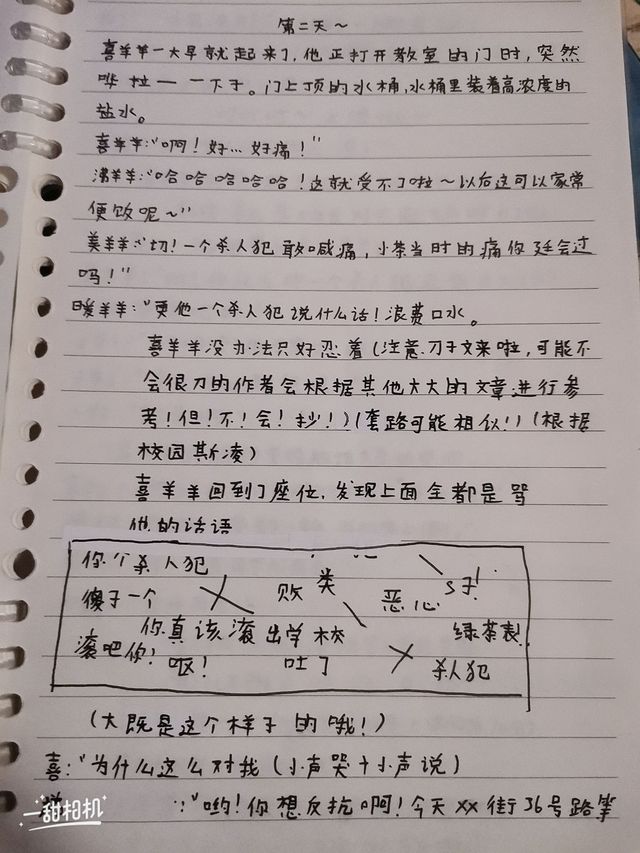 第二天～
喜羊羊一大早就起来了,他正打开教室的门时,突然
哗拉一一下子。门上顶的水桶,水桶里装着高浓度的
盐水。
喜羊羊:"啊！好…好痛！"
沸羊羊:"哈哈哈哈哈！这就受不了啦～以后这可以家常
便饭呢～"
美羊羊:"切！一个杀人犯敢喊痛,小茶当时的痛你廷会过
吗！"
暖羊羊:"更他一个杀人犯说什么话！浪费口水。
喜羊羊没办法只好忍着(注意.刀子文来啦,可能不
会很刀的作者会根据其他大大的文章进行参
考！但！不！会！抄！)(套路可能相似！)(根据
校园斯凌)
喜羊羊回到了座位,发现上面全都是骂
他的话语
你个杀人犯
傻子一个 败类 恶心 s了!
你真该滚出学校 绿茶裂!
滚吧你！ 呕！ 吐了 杀人犯
(大既是这个样子的哦！)
喜:"为什么这么对我(小声哭+小声说)
:"哟！你想反抗啊！今天xx街36号路等
甜相机